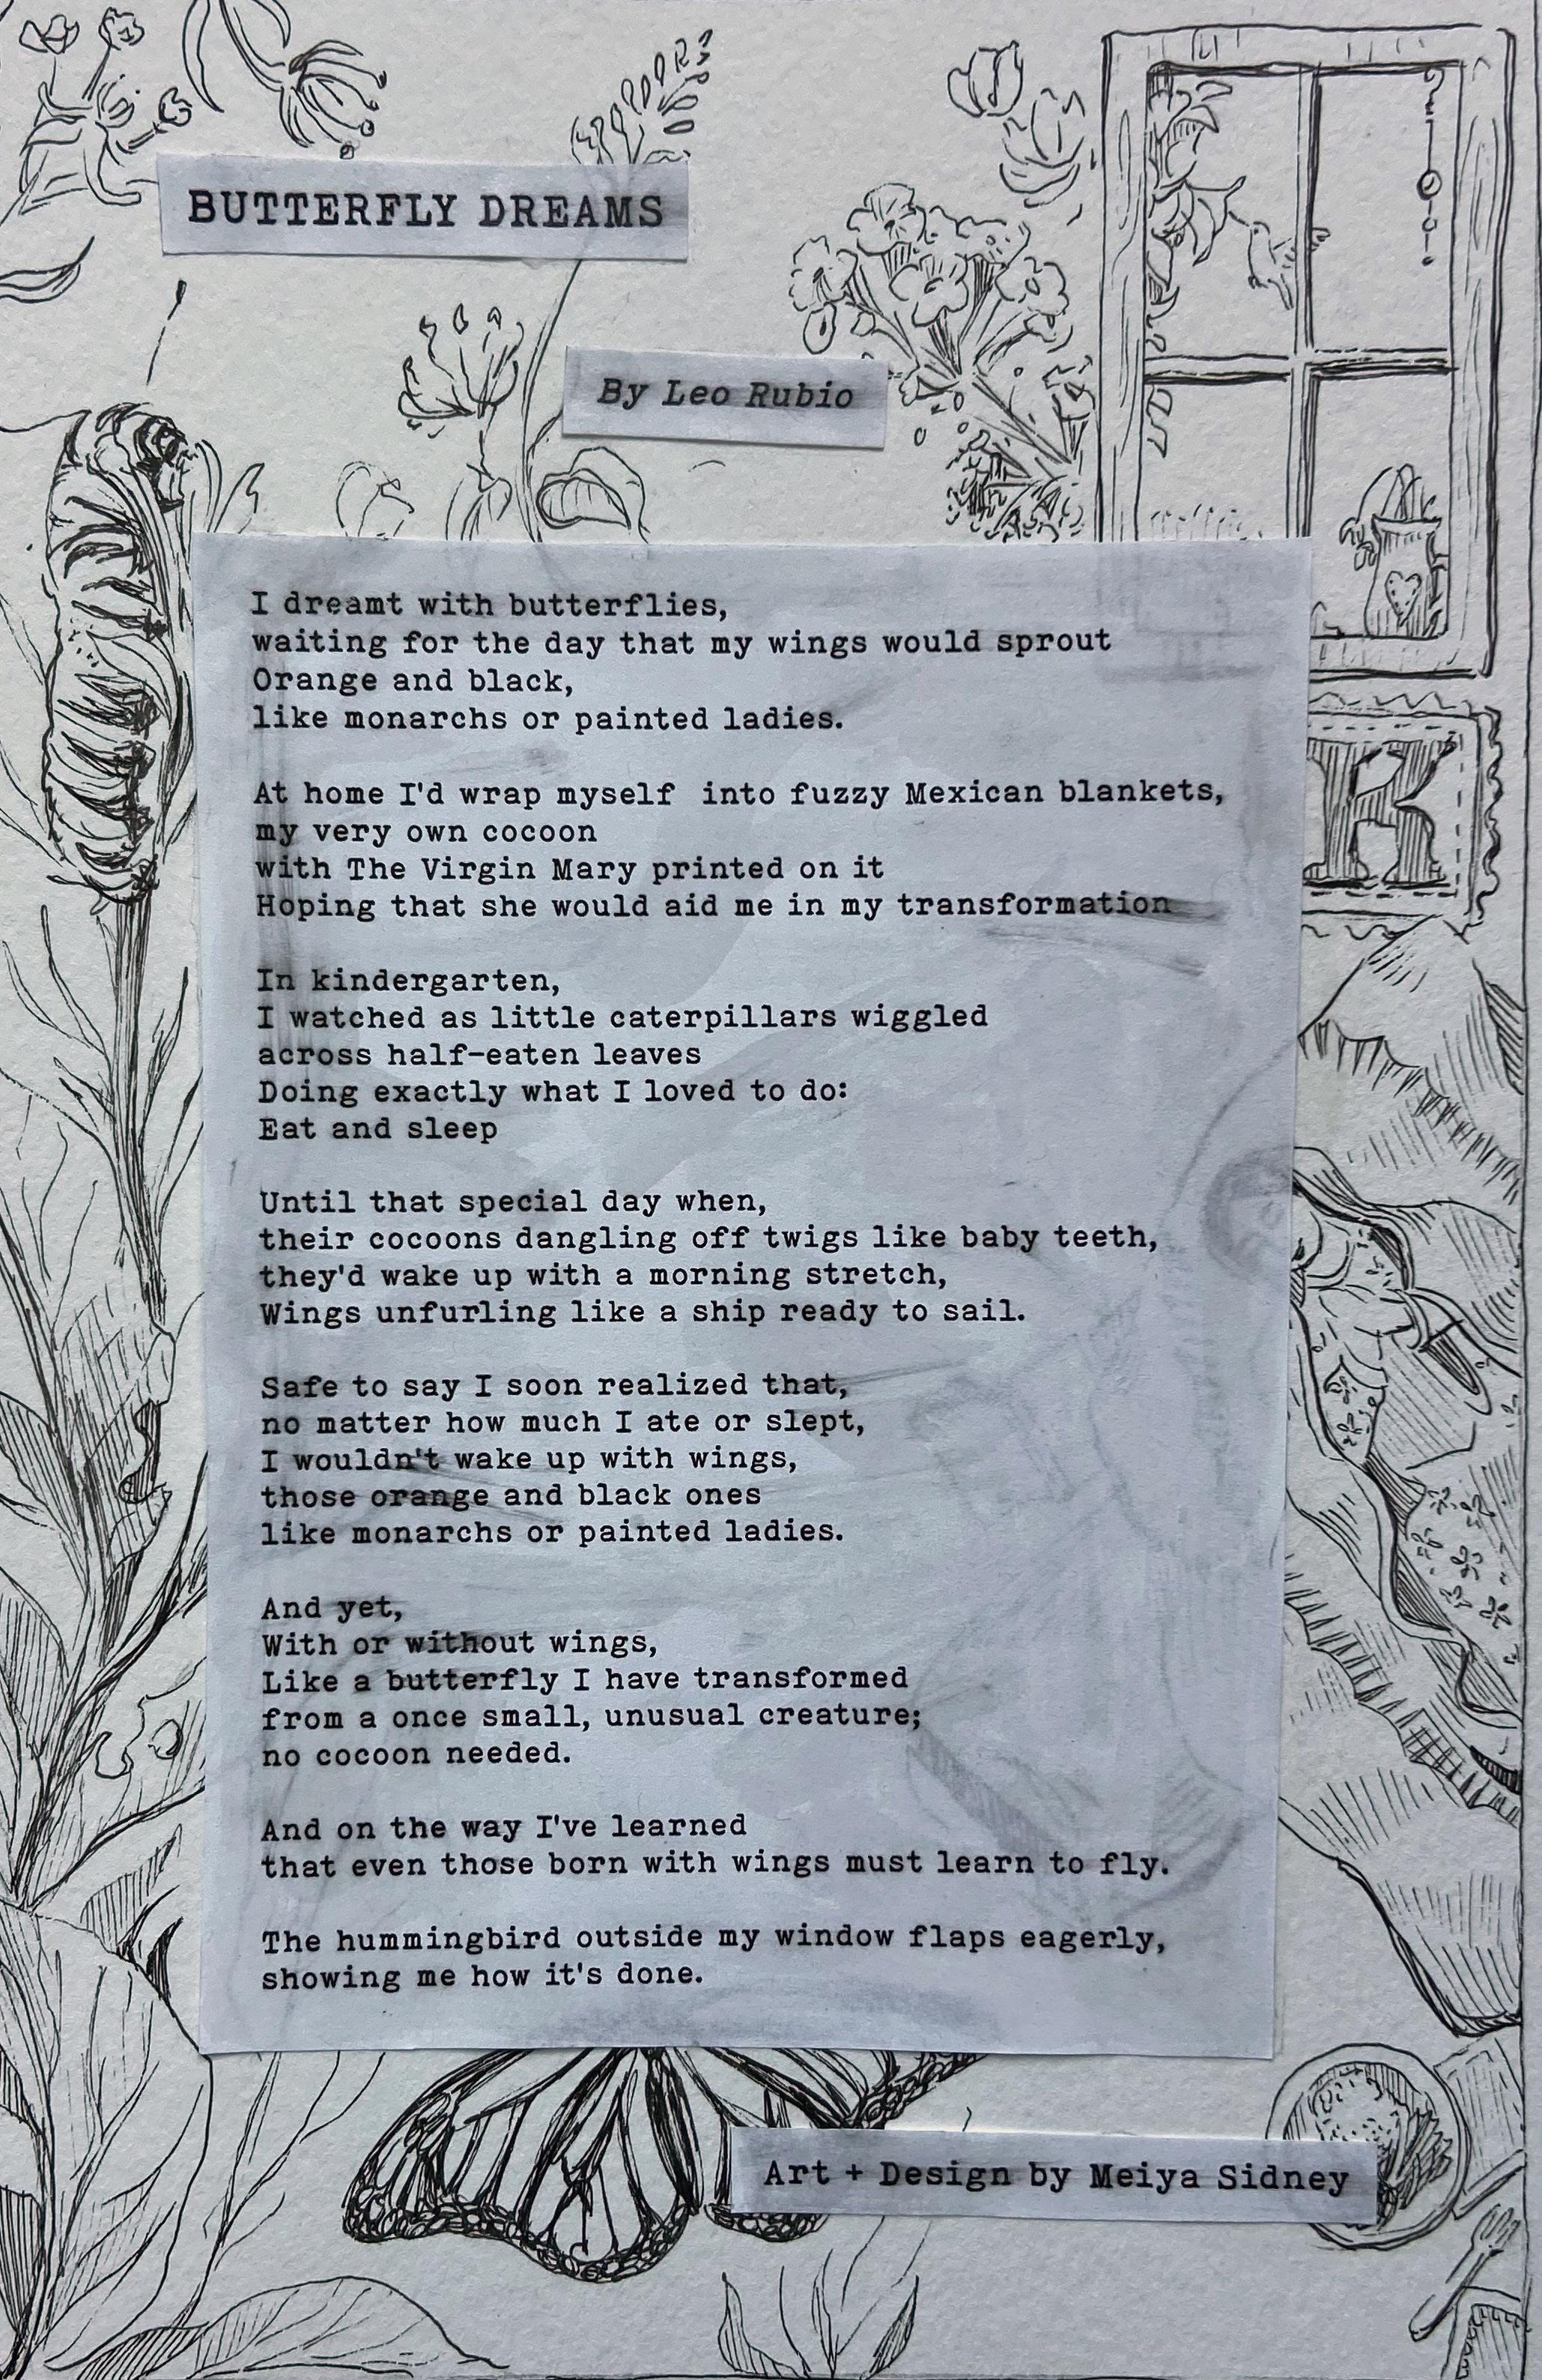 BUTTERFLY DREAMS
By Leo Rubio
I dreamt with butterflies,
waiting for the day that my wings would sprout
Orange and black,
like monarchs or painted ladies.
At home I'd wrap myself  into fuzzy Mexican blankets,
my very own cocoon
with The Virgin Mary printed on it
Hoping that she would aid me in my transformation
In kindergarten,
I watched as little caterpillars wiggled
across half-eaten leaves
Doing exactly what I loved to do:
Eat and sleep
Until that special day when,
their cocoons dangling off twigs like baby teeth,
they'd wake up with a morning stretch,
Wings unfurling like a ship ready to sail.
Safe to say I soon realized that,
no matter how much I ate or slept,
I wouldn't wake up with wings,
those orange and black ones
like monarchs or painted ladies.
And yet,
With or without wings,
Like a butterfly I have transformed
from a once small, unusual creature;
no cocoon needed.
And on the way I've learned
that even those born with wings must learn to fly.
The hummingbird outside my window flaps eagerly,
showing me how it's done.
Art + Design by Meiya Sidney